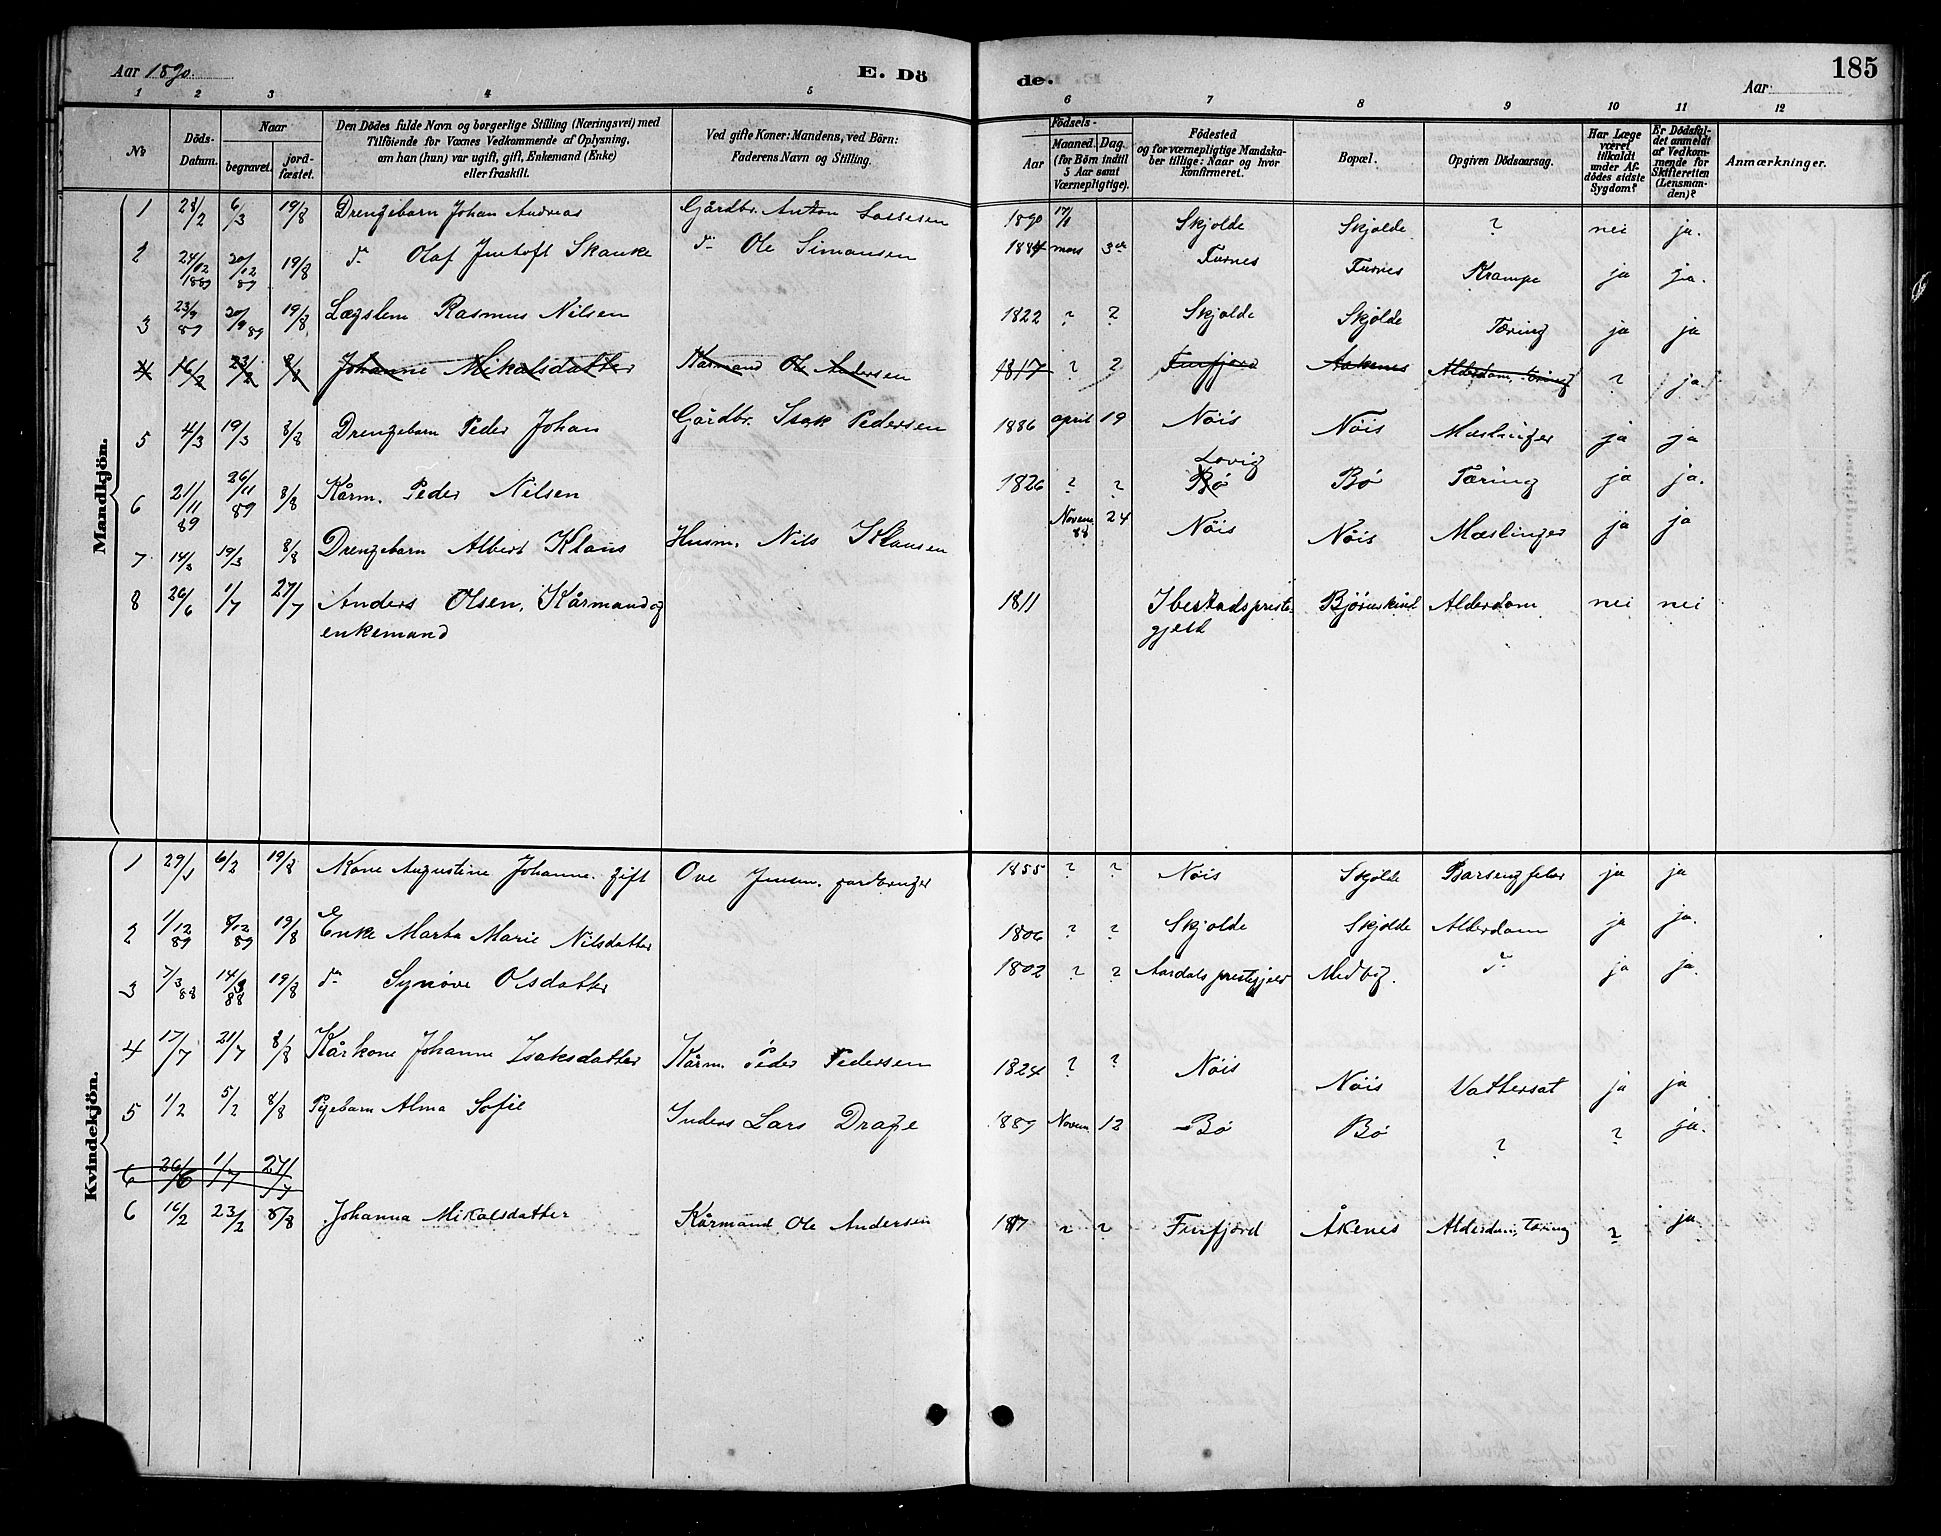 Aar 1890.
E. Dö
de.
185
Aar
1 2 3 4 5 6 7 8 9 10 11 12
No
Döds-Datum.
Naar
begravet.
jordfæstet.
Den Dödes fulde Navn og borgerlige Stilling (Næringsvei) med
Tilföiende for Voxnes Vedkommende af Oplysning,
om han (hun) var ugift, gift, Enkemand (Enke)
eller fraskilt.
Ved gifte Koner: Mandens, ved Börn:
Faderens Navn og Stilling.
Födsels-
Aar
Maaned. Dag.
(for Börn indtil
5 Aar samt
Værnepligtige).
Födested
og for værnepligtige Mandskaber
tillige: Naar og hvor
konfirmeret.
Bopæl.
Opgiven Dödsaarsag.
Har Læge
været
tilkaldt
under Afdödes
sidste
Sygdom?
Er Dödsfaldet
anmeldt
af Vedkommende
for
Skifteretten
(Lensmanden)?
Anmærkninger.
Mandkjön.
1 28/2 6/3 19/8 Drengebarn Johan Andreas Gårdbr. Anton 1890 17/1 Skjolde Skjolde ? nei ja.
2 24/12 1889 20/12 89 19/8 do Olaf Skanke do Ole Simonsen 1884 mars 3die Furnes Furnes Krampe ja ja.
3 23/9 89 20/9 89 19/8 Lægslem Rasmus Nilsen 1822 ? ? Skjolde Skjolde Tæring ja ja
4 16/2 23/2 8/8 Johanne Mikalsdatter Kårmand Ole Andersen 1817 ? ? Finfjord Aakenes Alderdom, tæring ? ja
5 4/3 19/3 8/8 Drengebarn Peder Johan Gårdbr. Isak Pedersen 1886 april 19 Nöis Nöis Mæslinger ja ja
6 21/11 89 26/11 89 8/8 Kårm. Peder Nilsen 1826 ? ? Bø Lovig Bø Tæring ja ja.
7 14/3 19/3 8/8 Drengebarn Albert Klaus Husm. Nils Klausen Novem 88 24 Nöis Nöis Mæslinger ja ja
8 26/6 1/7 27/7 Anders Olsen, Kårmand og 1811 Ibestads preste- Bjørnskind Alderdom nei nei
enkemand gjeld
Kvindekjön.
1 29/1 6/2 19/8 Kone Augustine Johanne. gift Ove Jensen. gardbruger 1855 ? ? Nöis Skjolde Barsengfeber ja ja
2 1/12 89 8/12 89 19/8 Enke Marta Marie Nilsdatter 1806 ? ? Skjolde Skjolde Alderdom ja ja.
3 7/3 88 14/3 88 19/8 do Synøve Olsdatter 1802 ? ? Aardals prestegjeld Medbÿ. do ja ja.
4 17/7 21/7 8/8 Kårkone Johanne Isaksdatter Kårm. Peder Pedersen 1824 ? ? Nöis Nöis Vattersot ja ja
5 1/2 5/2 8/8 Pigebarn Alma Sofie Inders Lars Drage 1889 Novem 12 Bø Bø ? ? ja.
6 26/6 1/7 27/7
6 16/2 23/2 8/8 Johanna Mikalsdatter Kårmand Ole Andersen 1817 ? ? Finfjord Åkenes Alderdom, tæring ? ja